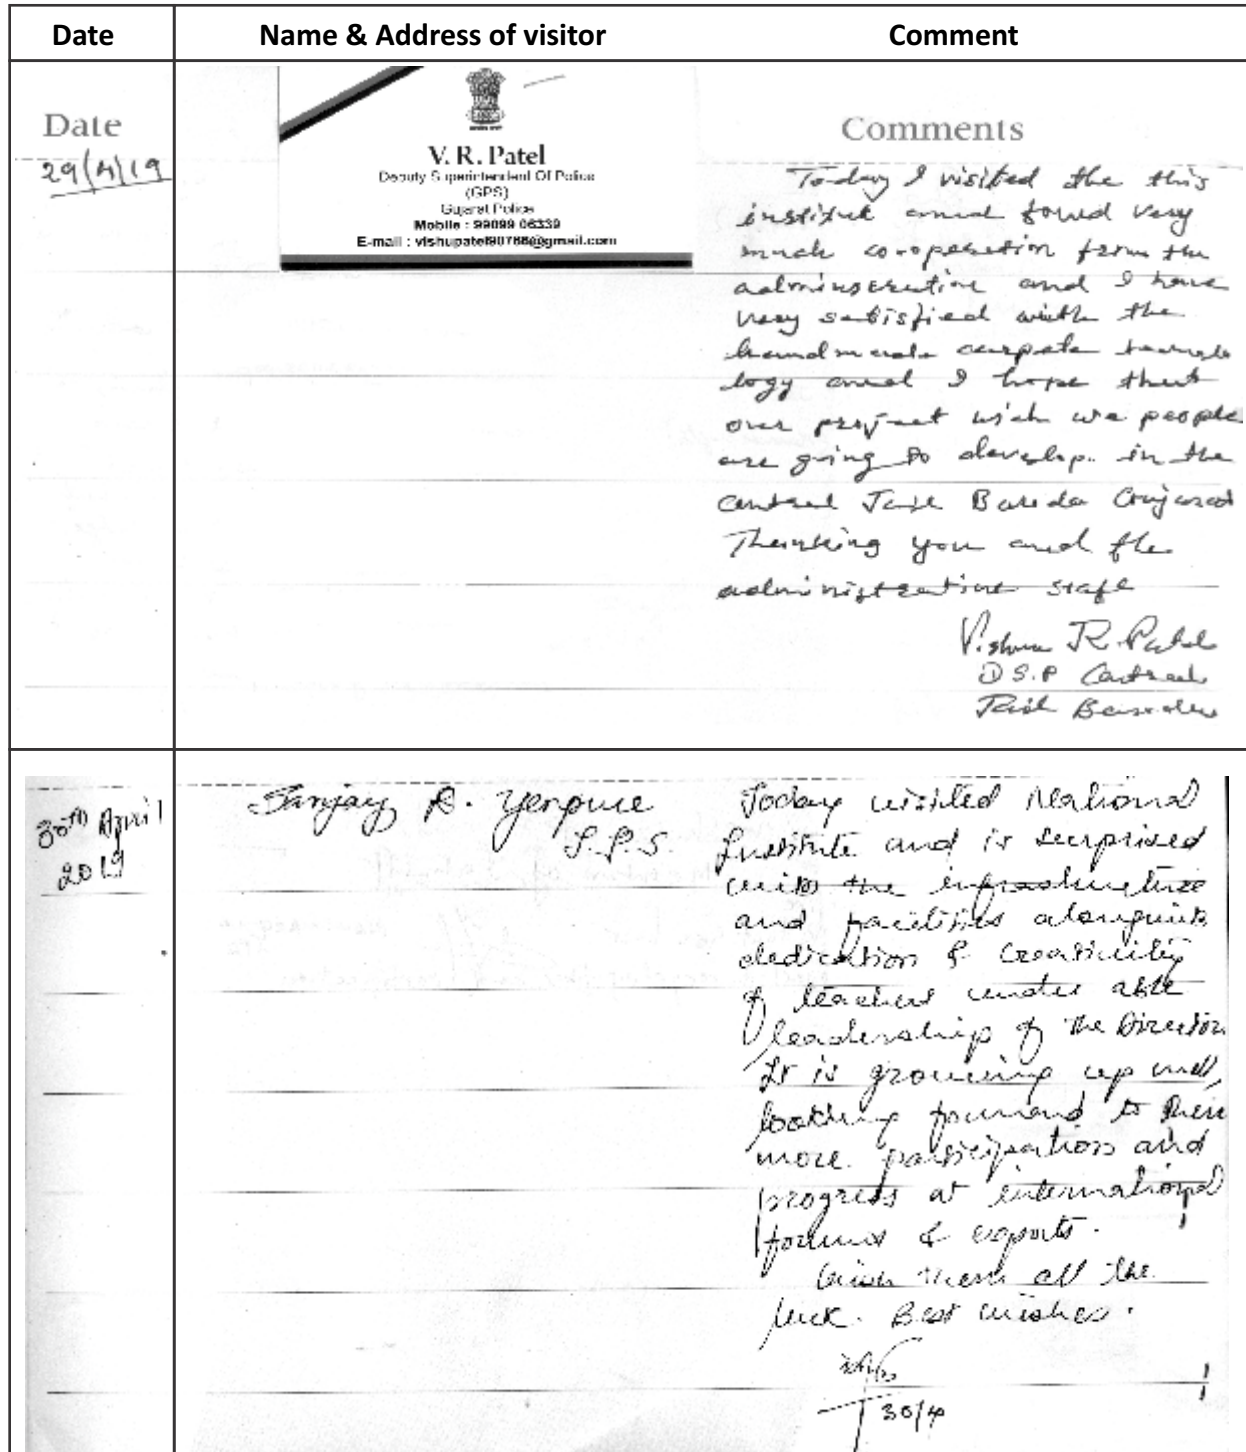 Date Name & Address of visitor Comment
Date
29/4/19
V. R. Patel
Deputy Superintendent Of Police
(GPS)
Gujarat Police
Mobile : 99099 06339
E-mail :
Comments
Today I visited the this
institut and found very
much cooperation from the
and I have
very satisfied with the
handmade
logy and I hope that
our project wich we people
are going to develop. in the
central Jail Baroda Gujarat
Thanking you and the
administrative staff
R. Patel
D S.P Central
Jail Baroda
30th April
2019
Sanjay
Today visited National
Institute and is surprised
with the infrastructure
and facilities alongwith
dedication & creativity
of teachers under able
leadership of the Director
It is growing up and
looking forward to their
more participation and
progress at international
forums & exports.
Wish them all the
luck. Best wishes.
30/4